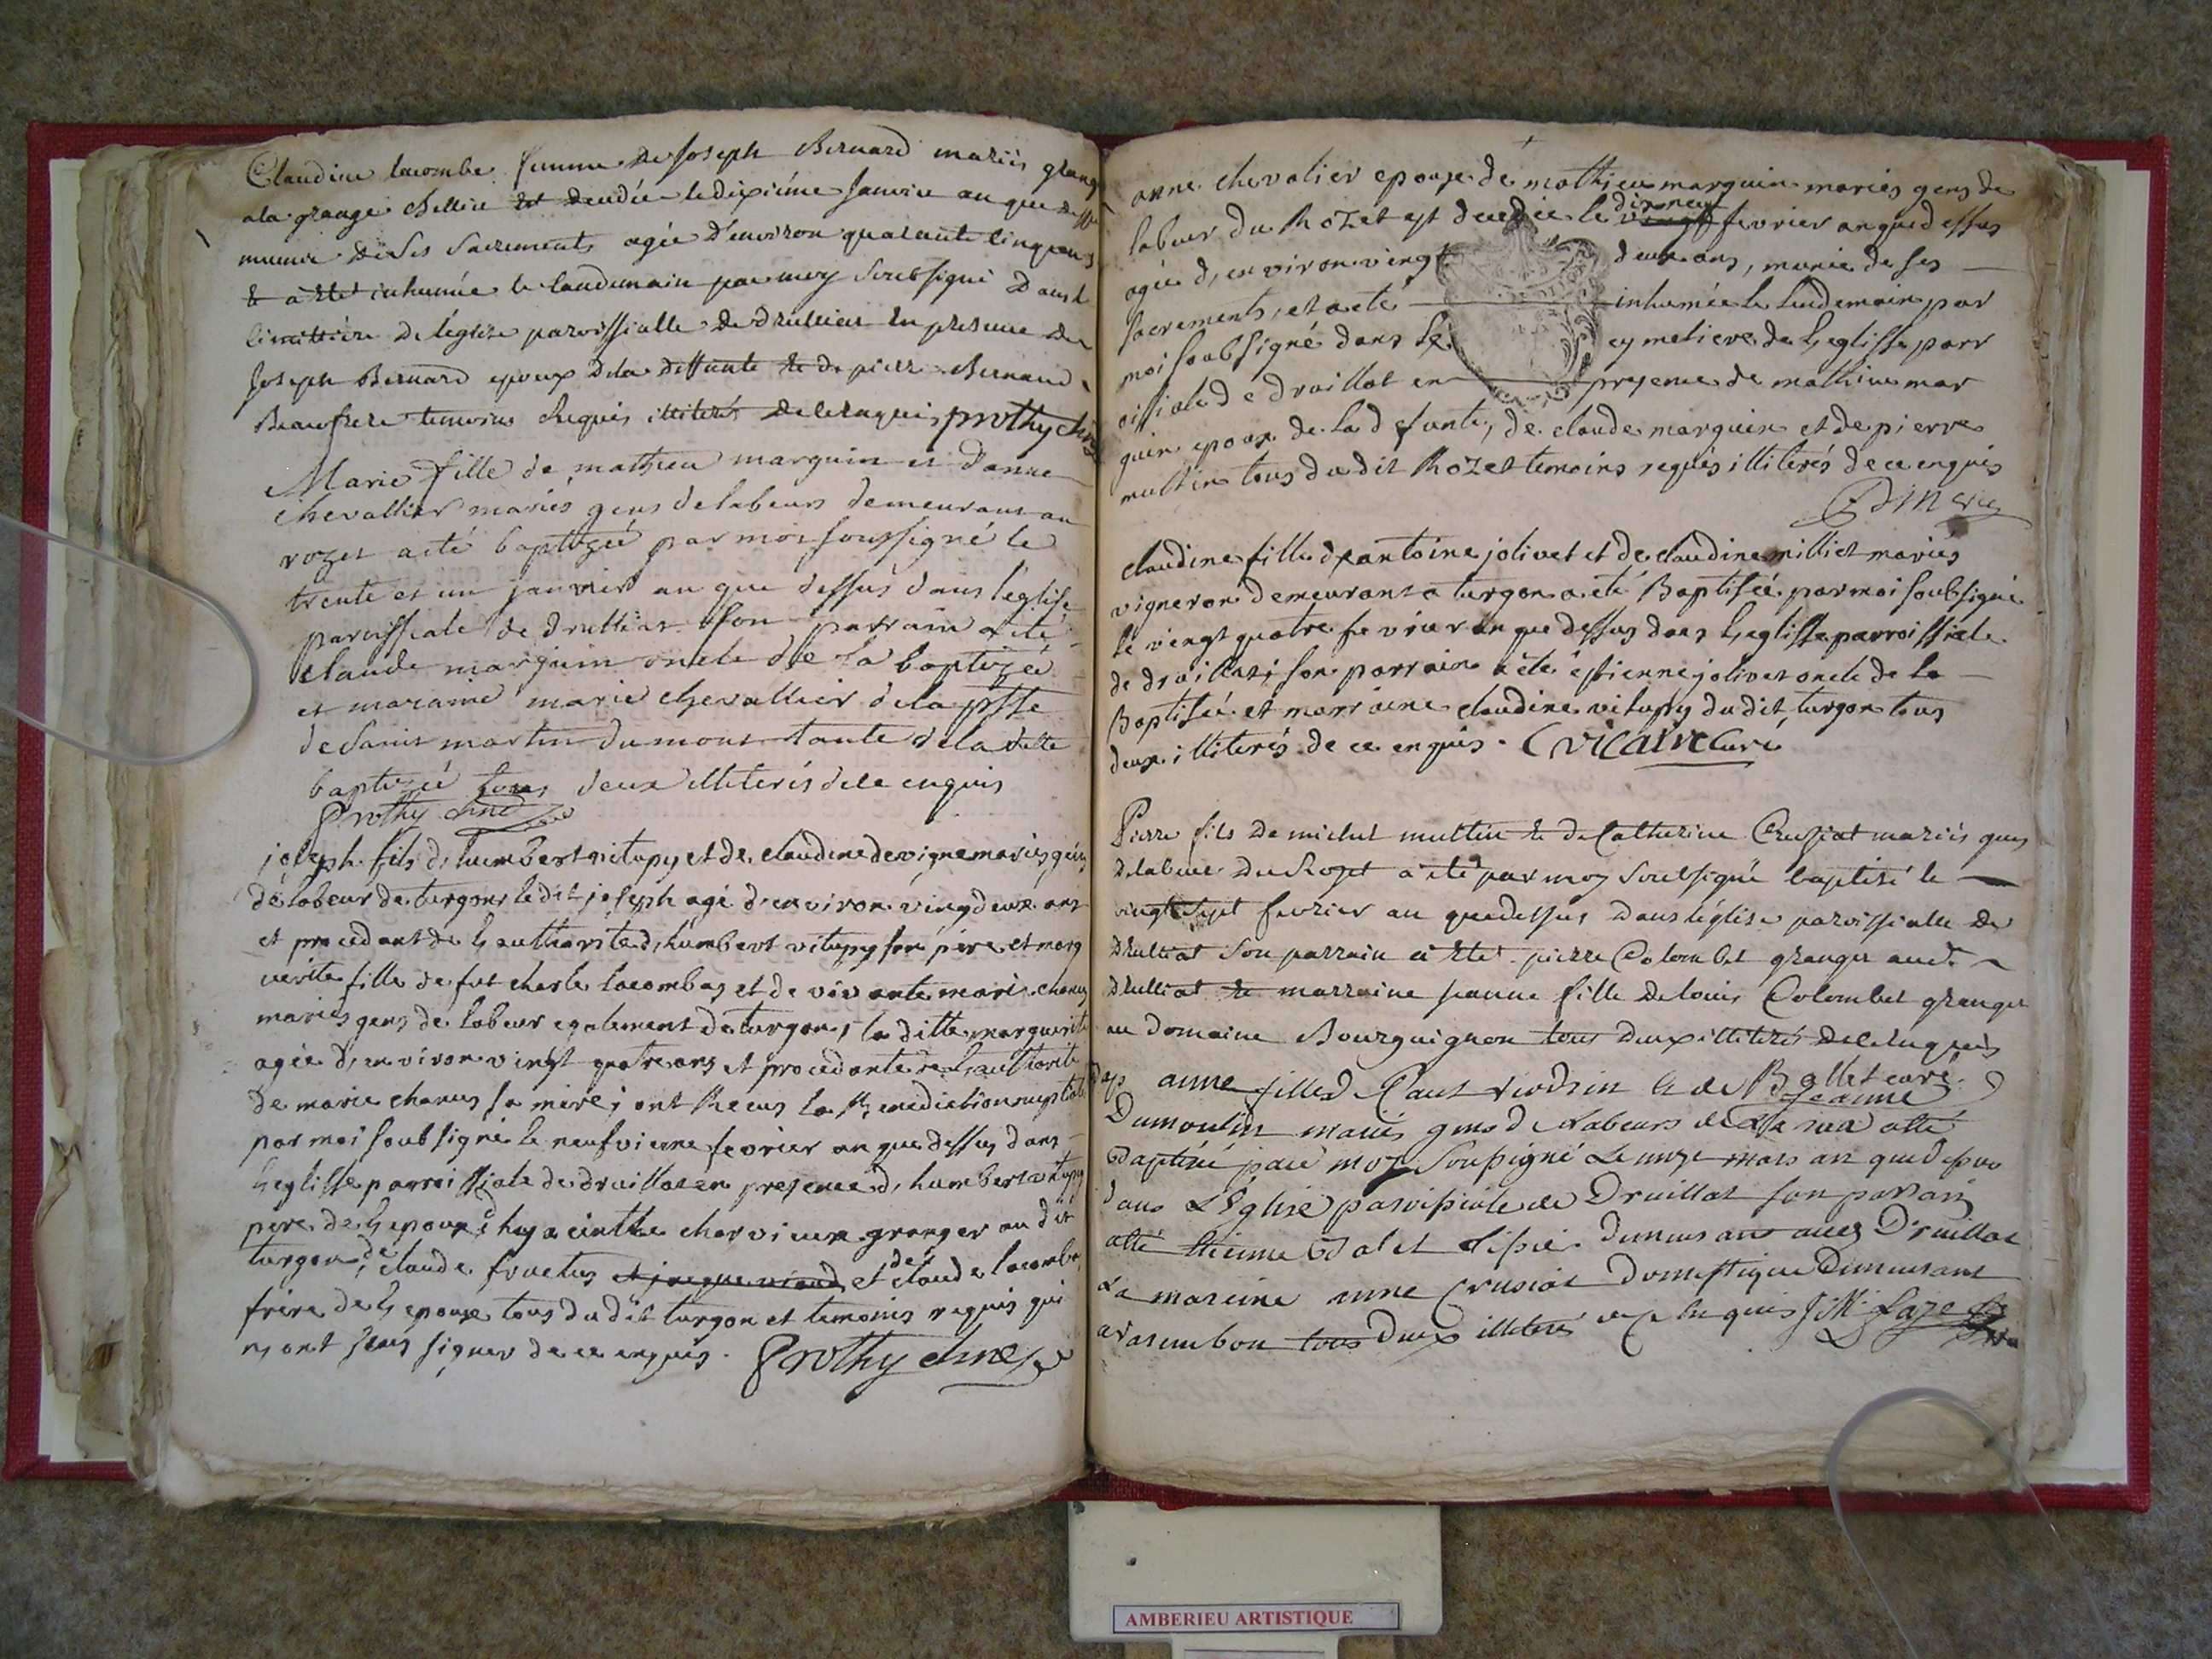 Claudine lacombe femme de Joseph Bernard mariés grang
ala grange chellin est decedée le dixième Janvier an que dessu
munie de ses sacrements agée d'environ quarante cinq ans
& a été inhumée le landemain par moy soubsigné Dans le
cimittière de l'église paroissialle de druillat en presence de
Joseph Bernard epoux dela deffunte & de pierre Bernard
Beaufrere temoins requis illiterés de ce enquis prothy
Marie fille de mathieu marguin et d'anne
chevallier mariés gens de labeurs demeurans au
rozet a été baptizée par moi soussigné le
trente et un janvier an que dessus dans l'église
paroissiale de druillat son parrain a été
claude marguin oncle de la baptizée
et maraine marie chevallier de la psse
de Saint martin du mont tante de la ditte
baptizée tous deux illiterés de ce enquis
Prothy
joseph fils d, humbert vitupy et de claudine devigne mariés gens
de labeur de turgon, le dit joseph agé d'environ vingdeux ans
et procedant de l, authorité d, humbert vitupy son père et marg
uerite fille de fut charle lacombe et de vivante marie chanus
mariés gens de labeur egalement de turgon, la ditte marguerite
agée d, environ vingt quatre ans et procedante de l, authorité
de marie chanus sa mère; ont Recus la Benediction nuptiale
par moi soubsigné le neufvieme fevrier an que dessus dans
l, eglisse parroissiale de druillat en presence d, humbert vitupy
pere de l, epoux d, hyacinthe charvieux granger au dit
turgon, de claude fructus et jacque viand et de claude lacombe
frère de l, epouse tous du dit turgon et temoins requis qui
n, ont sceus signer de ce enquis. Prothy
anne chevalier epouse de mathieu marguin mariés gens de
labeur du Rozet est decedée le vingt dix neuf fevrier an que dessus
agée d, environ vingt deux ans, munie de ses
sacrements, et a eté inhumée le lendemain par
moi soubsigné dans le cymetiere de l, eglisse parr
oissiale de druillat en presence de mathieu mar
guin epoux de la defunte, de claude marguin et de pierre
multin tous du dit Rozet temoins requis illiterés de ce enquis
claudine fille de antoine jolivet et de claudine milliet mariés
vigneron demeurans a turgon a eté Baptisée par moi soubsigné
le vingt quatre fevrier an que dessus dans l, eglisse parroissiale
de druillat; son parrain a été estienne jolivet oncle de la
Baptisée et marraine claudine vitupy du dit turgon tous
deux illiterés de ce enquis. vicaire Curé
Pierre fils de michel multin & de Catherine Crusiat mariés gens
de labeur du Rozet a été par moy soubsigné baptisé le
vingt sept fevrier an que dessus dans l'église paroissialle de
druillat son parrain a été pierre Colombet granger aud.
druillat & marraine jeanne fille de louis Colombet granger
au domaine Bourguignon tous deux illiterés de ce enquis
Bollet curé
anne fille d Claus viodrin & de jeanne
Dumoulin mariés gens de Labeurs atté
Baptisé par moy soussigné Le unze mars an que dessus
dans L'Eglise paroissiale de Druillat son parrain
atté Etienne demeurans audit Druillat
La mareine anne Crusiat Domestique Demeurant
a varambon tous Deux illiteré de ce enquis
AMBERIEU ARTISTIQUE